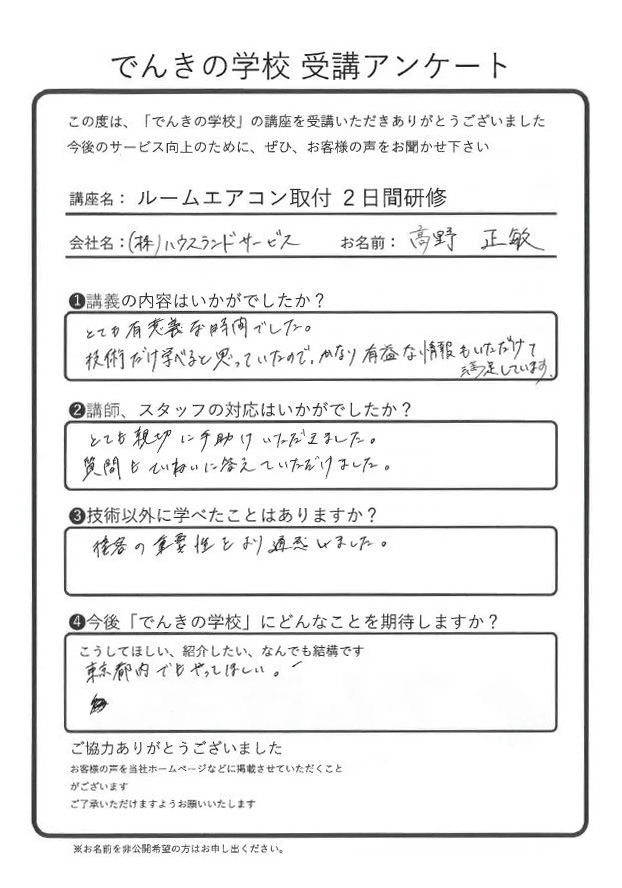 でんきの学校 受講アンケート
この度は、「でんきの学校」の講座を受講いただきありがとうございました
今後のサービス向上のために、ぜひ、お客様の声をお聞かせ下さい
講座名： ルームエアコン取付 ２日間研修
会社名：(株)ハウスランドサービス お名前： 高野 正敏
❶講義の内容はいかがでしたか？
とても有意義な時間でした。
技術だけ学べると思っていたので、かなり有益な情報もいただけて
満足しています。
❷講師、スタッフの対応はいかがでしたか？
とても親切に手助けいただきました。
質問もていねいに答えていただけました。
❸技術以外に学べたことはありますか？
接客の重要性をより痛感しました。
❹今後「でんきの学校」にどんなことを期待しますか？
こうしてほしい、紹介したい、なんでも結構です
東京都内でもやってほしい。
ご協力ありがとうございました
お客様の声を当社ホームページなどに掲載させていただくこと
がございます
ご了承いただけますようお願いいたします
※お名前を非公開希望の方はお申し出ください。